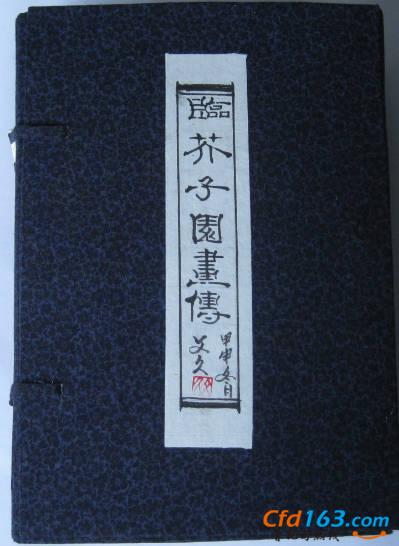 臨芥子園畫傳
甲申冬日
艾久
Cfd163.com